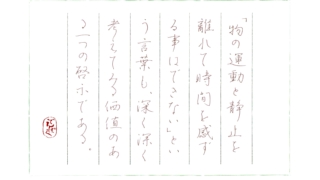 「物の運動と静止を
離れて時間を感ず
る事はできない」とい
う言葉も、深く深く
考えてみる価値のあ
る一つの啓示である。